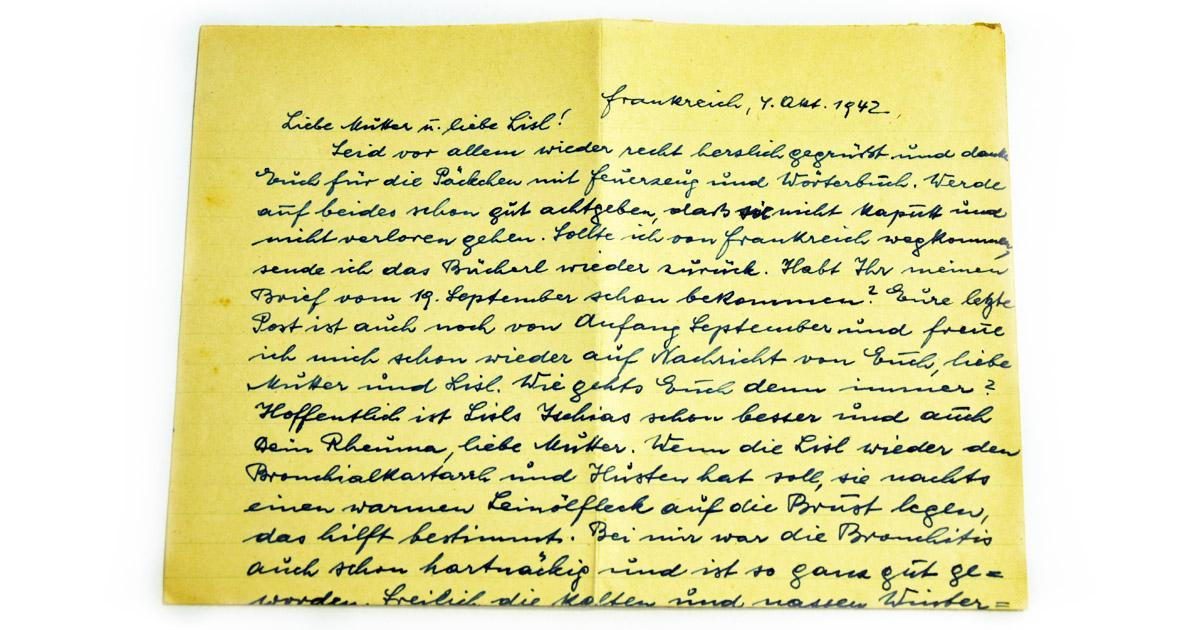 Frankreich, 4. Okt. 1942.
Liebe Mutter u. liebe Lisl!
Seid vor allem wieder recht herzlich gegrüßt und danke
Euch für die Päckchen mit Feuerzeug und Wörterbuch. Werde
auf beides schon gut achtgeben, daß sie nicht kaputt und
nicht verloren gehen. Sollte ich von Frankreich wegkommen,
sende ich das Bücherl wieder zurück. Habt Ihr meinen
Brief vom 19. September schon bekommen? Eure letzte
Post ist auch noch von Anfang September und freue
ich mich schon wieder auf Nachricht von Euch, liebe
Mutter und Lisl. Wie gehts Euch denn immer?
Hoffentlich ist Lisls Ischias schon besser und auch
Dein Rheuma, liebe Mutter. Wenn die Lisl wieder den
Bronchialkatarrh und Husten hat soll, sie nachts
einen warmen Leinölfleck auf die Brust legen,
das hilft bestimmt. Bei mir war die Bronchitis
auch schon hartnäckig und ist so ganz gut ge=
worden. Freilich die kalten und nassen Winter=